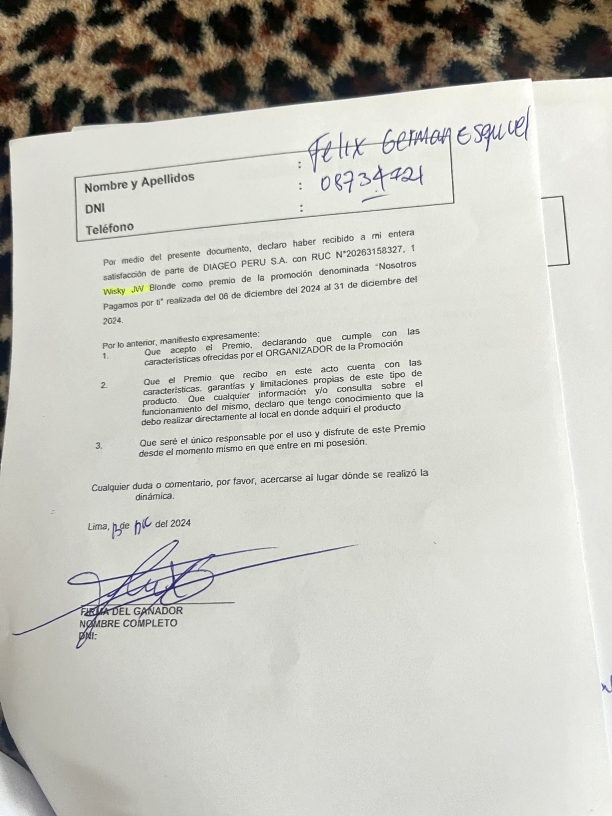 Nombre y Apellidos : Felix German Esquivel
DNI : 08734721
Teléfono :
Por medio del presente documento, declaro haber recibido a mi entera
satisfacción de parte de DIAGEO PERU S.A. con RUC N°20263158327, 1
Wisky JW Blonde como premio de la promoción denominada "Nosotros
Pagamos por ti" realizada del 06 de diciembre del 2024 al 31 de diciembre del
2024.
Por lo anterior, manifiesto expresamente:
1. Que acepto el Premio, declarando que cumple con las
características ofrecidas por el ORGANIZADOR de la Promoción
2. Que el Premio que recibo en este acto cuenta con las
características, garantías y limitaciones propias de este tipo de
producto. Que cualquier información y/o consulta sobre el
funcionamiento del mismo, declaro que tengo conocimiento que la
debo realizar directamente al local en donde adquirí el producto
3. Que seré el único responsable por el uso y disfrute de este Premio
desde el momento mismo en que entre en mi posesión.
Cualquier duda o comentario, por favor, acercarse al lugar dónde se realizó la
dinámica.
Lima, 13 de Dic del 2024
FIRMA DEL GANADOR
NOMBRE COMPLETO
DNI: